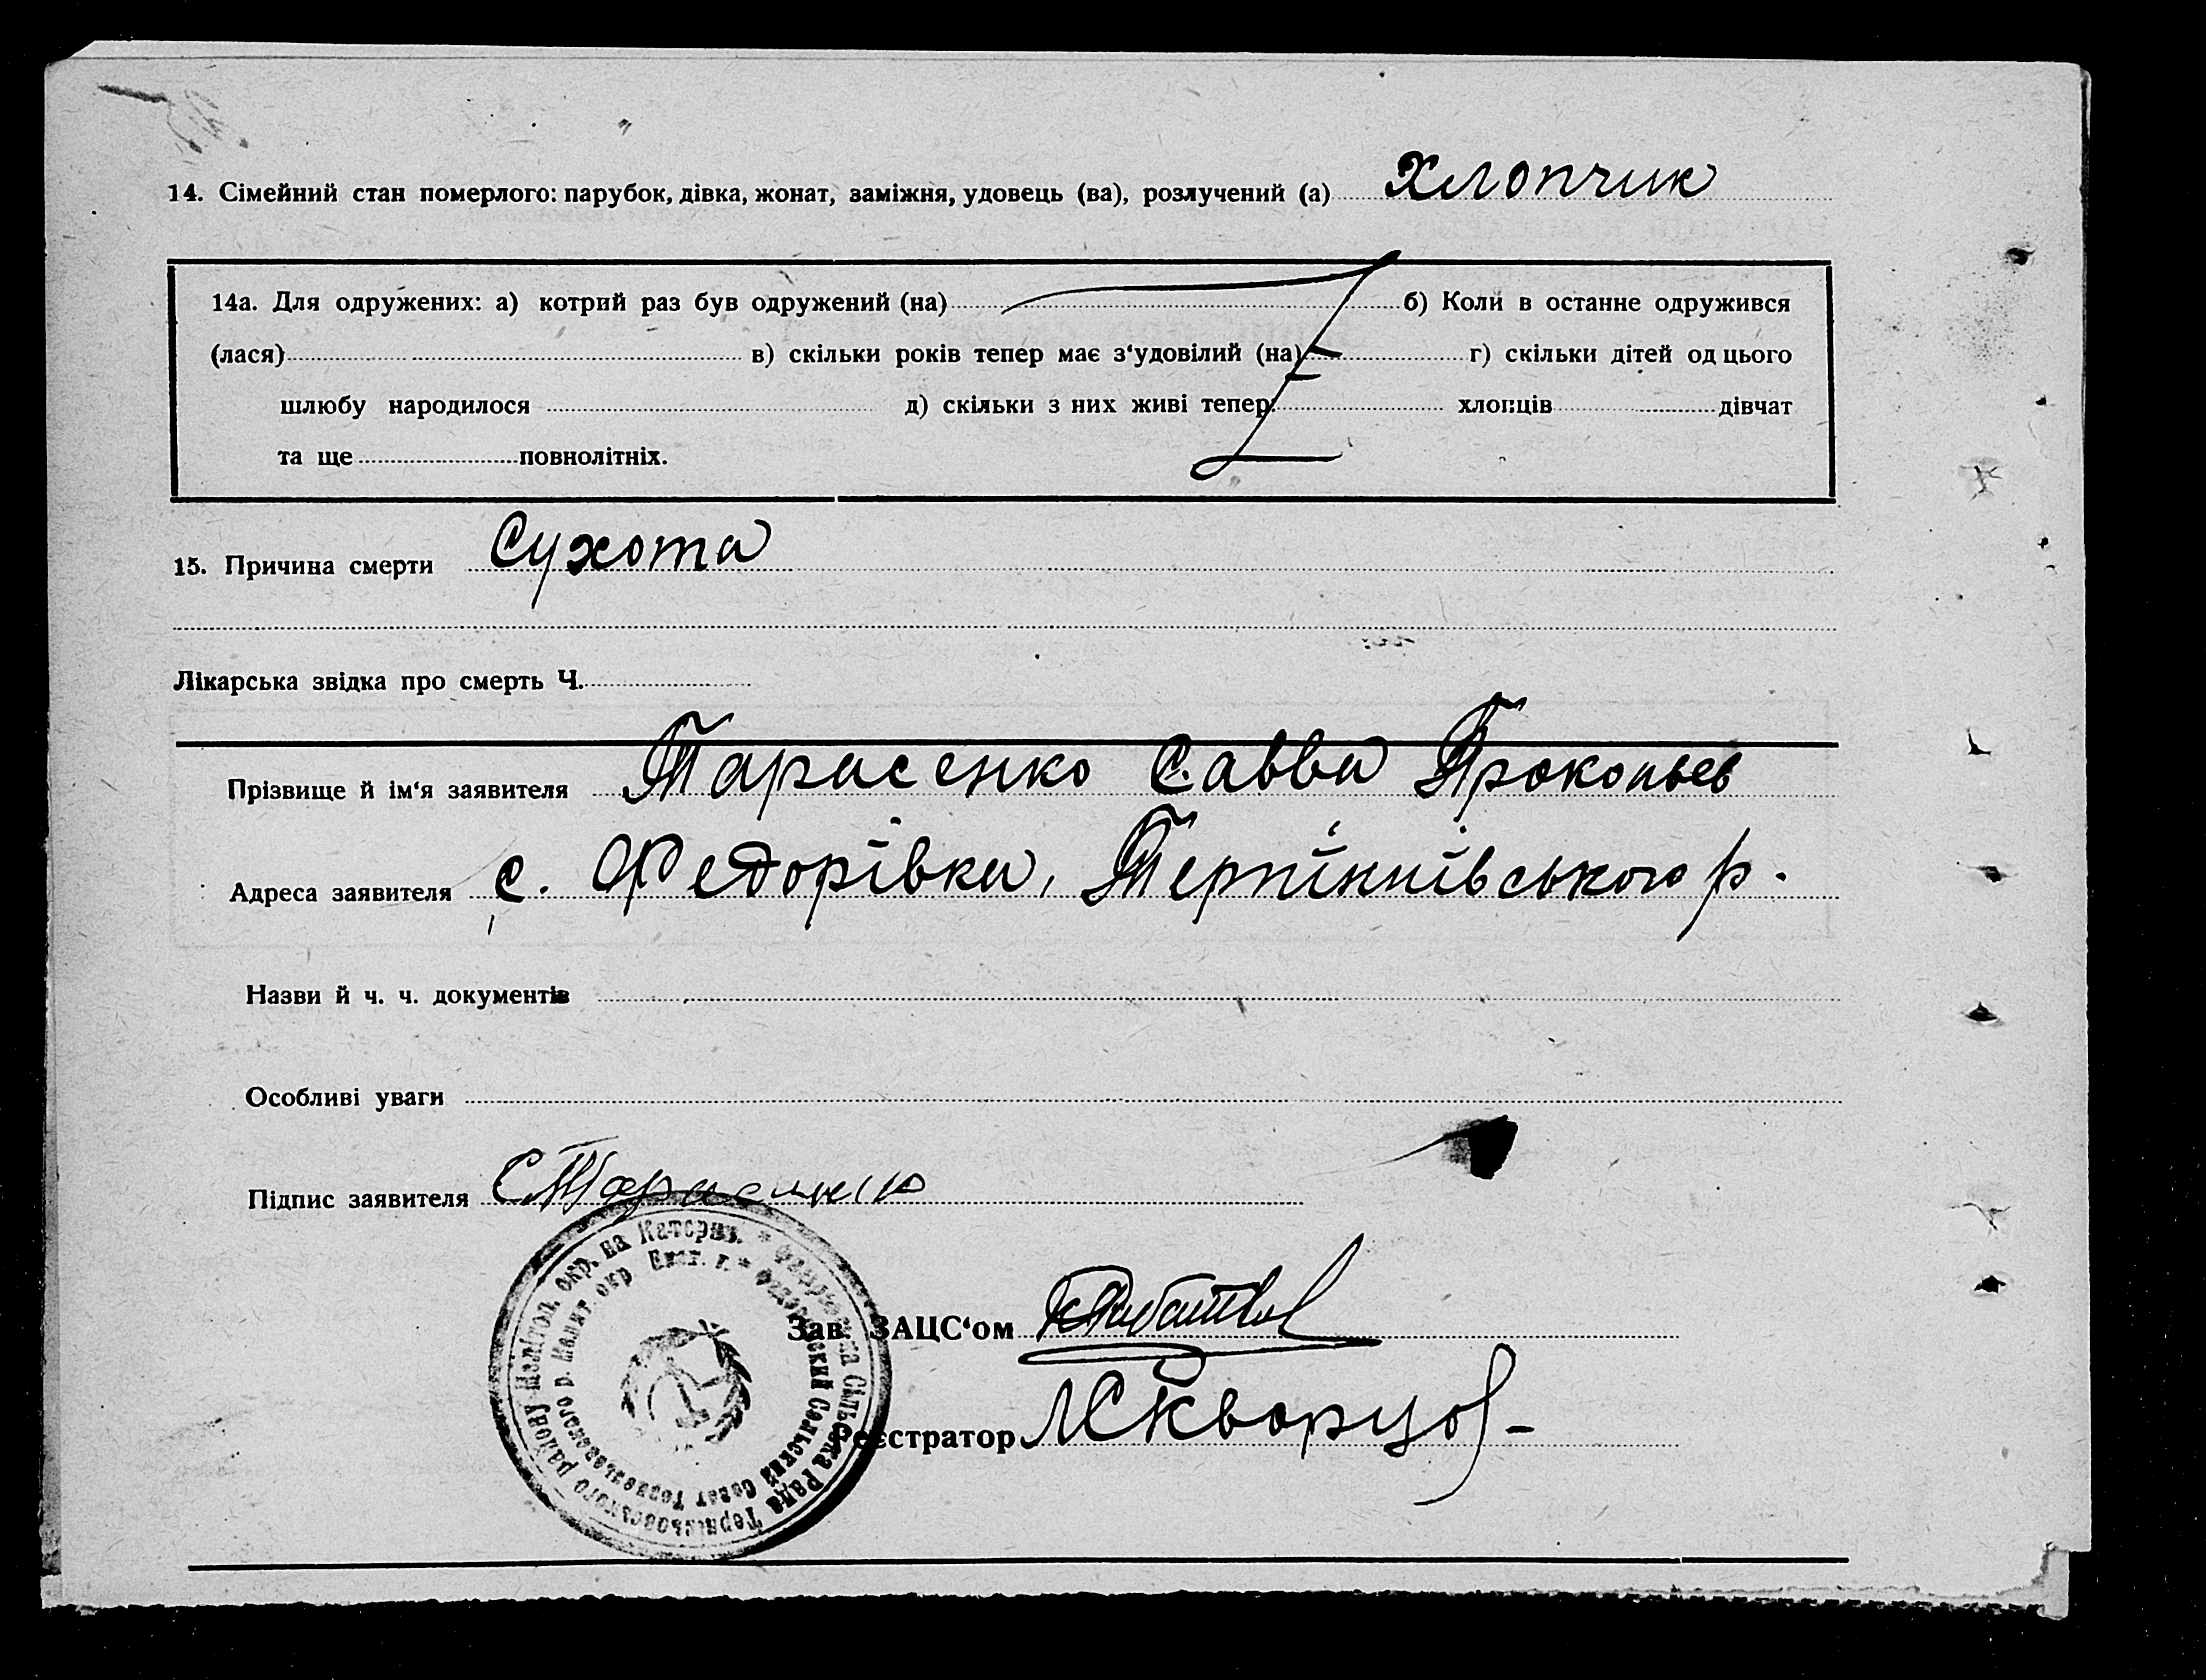 14. Сімейний стан померлого: парубок, дівка, жонат, заміжня, удовець (ва), розлучений (а) Хлопчик
14а. Для одружених: а) котрий раз був одружений (на) б) Коли в останне одружився
(лася) в) скільки років тепер має з‘удовілий (на) г) скільки дітей од цього
шлюбу народилося д) скільки з них живі тепер хлопців дівчат
та ще повнолітніх.
15. Причина смерти Сухота
Лікарська звідка про смерть Ч.
Прізвище й ім‘я заявителя Тарасенко Савва Прокопьев
Адреса заявителя с. Федорівка, Терпінніівського р.
Назви й ч. ч. документів
Особливі уваги
Підпис заявителя СТарасенко
Зав. ЗАЦС‘ом
Реєстратор МСкворцов
району Меліпоп. окр. на Катерин. * Сільська Рада
р. Мелит. окр Екат. г. * Федоровский Сельский Совет